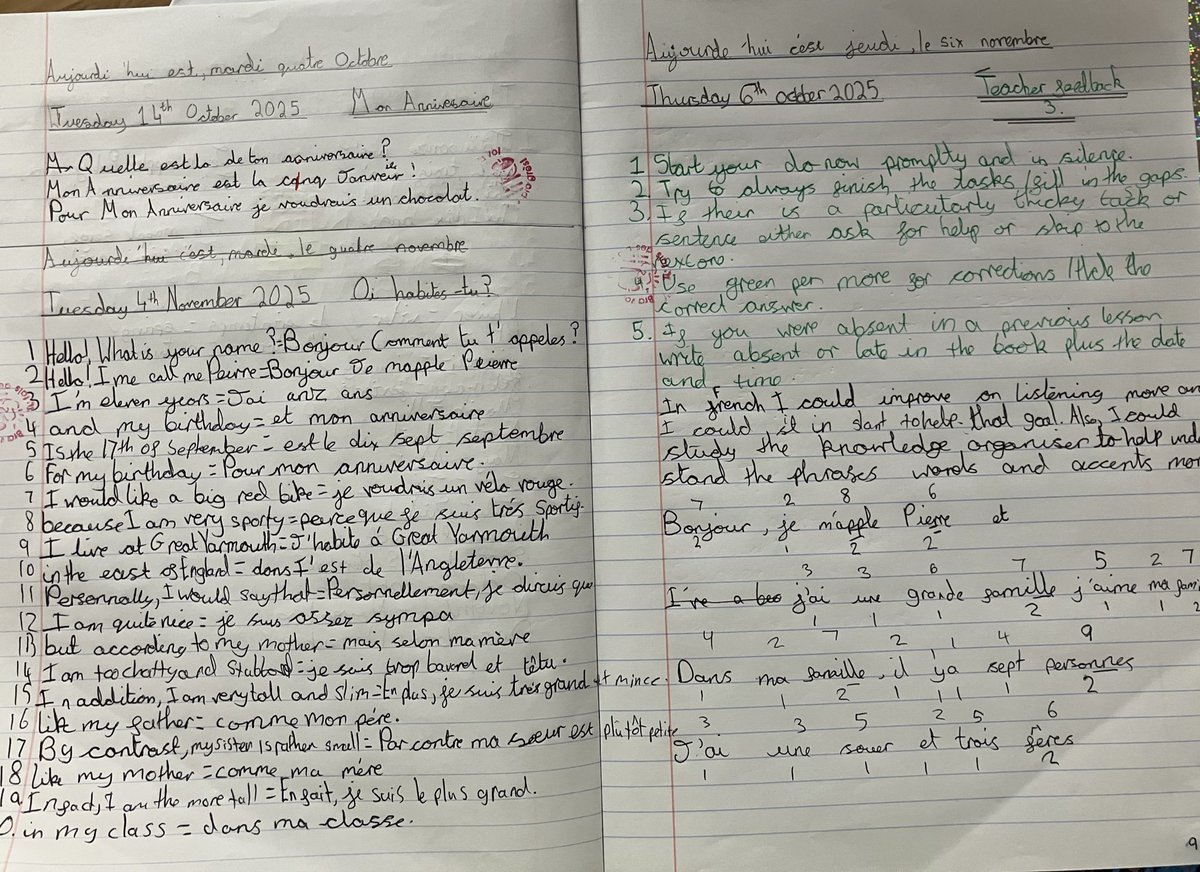 Aujourdi 'hui est, mardi quatre Octobre
Tuesday 14th October 2025 Mon Anniversaire
Quelle est la de ton anniversaire?
Mon Anniversaire est la cinq Janvier!
Pour Mon Anniversaire je voudrais un chocolat.
Aujourde 'hui c'est, mardi, le quatre novembre
Tuesday 4th November 2025 Oi habites-tu?
1 Hello! What is your name?=Bonjour Comment tu t'appeles?
2 Hello! I me call me Peirre=Bonjour Je mapple Peierre
3 I'm eleven years=J'ai anz ans
4 and my birthday=et mon anniversaire
5 Is the 17th of September=est le dix sept septembre
6 For my birthday=Pour mon anniversaire.
7 I would like a big red bike=je voudris un vélo rouge.
8 because I am very sporty=perce que je suis trés sportif.
9 I live at Great Yarmouth=J'habite á Great Yarmouth
10 in the east of England=dans l'est de l'Angleterre.
11 Personnally, I would say that=Personnellement, je dirais que
12 I am quite nice=je suis ossez sympa
13 but according to my mother=mais selon ma mère
14 I am too chatty and Stubborn=je suis trop bavard et têtu.
15 In addition, I am very tall and slim=En plus, je suis très grand et mince.
16 like my father=comme mon pére.
17 By contrast, my sister is rather small=Par contre ma soeur est plutôt petite
18 like my mother=comme ma mére
19 In fact, I am the more tall=En fait, je suis le plus grand.
0. in my class=dans ma classe.
Aujourde 'hui c'est jeudi, le six novembre
Thursday 6th october 2025 Teacher feedback
3.
1 Start your do now promptly and in silence.
2. Try to always finish the tasks/fill in the gaps.
3. If their is a particularly thicky task or
sentence either ask for help or skip to the
next one.
4 Use green pen more for corrections/the
correct answer.
5. If you were absent in a previous lesson
write absent or late in the book plus the date
and time.
In french I could improve on listening more and
I could, it in start to help that goal. Also, I could
study the knowledge organiser to help und
stand the phrases words and accents mor
7 2 8 6
Bonjour, je m'apple Pierre et
2 1 2 2
3 3 6 7 5 2 7
I've a beo j'ai une grande famille j'aime ma fami
1 1 1 2 1 1 2
4 2 7 2 1 4 9
Dans ma famille, il ya sept personnes
1 1 2 1 1 1 1 2
3 3 5 2 5 6
J'ai une souer et trois fréres
1 1 1 1 1 2
9